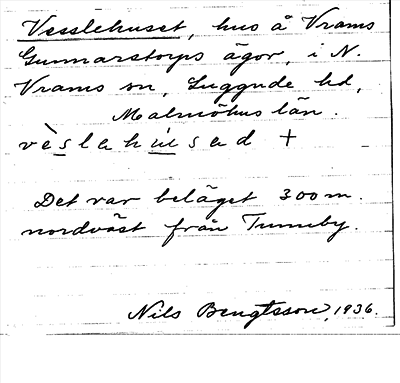 Vesslehuset, hus å Vrams
Gunnarstorps ägor, i N.
Vrams sn, Luggude hd,
Malmöhus län.
vèslahúsad +
Det var beläget 300 m.
nordväst från Tunneby.
Nils Bengtsson, 1936.